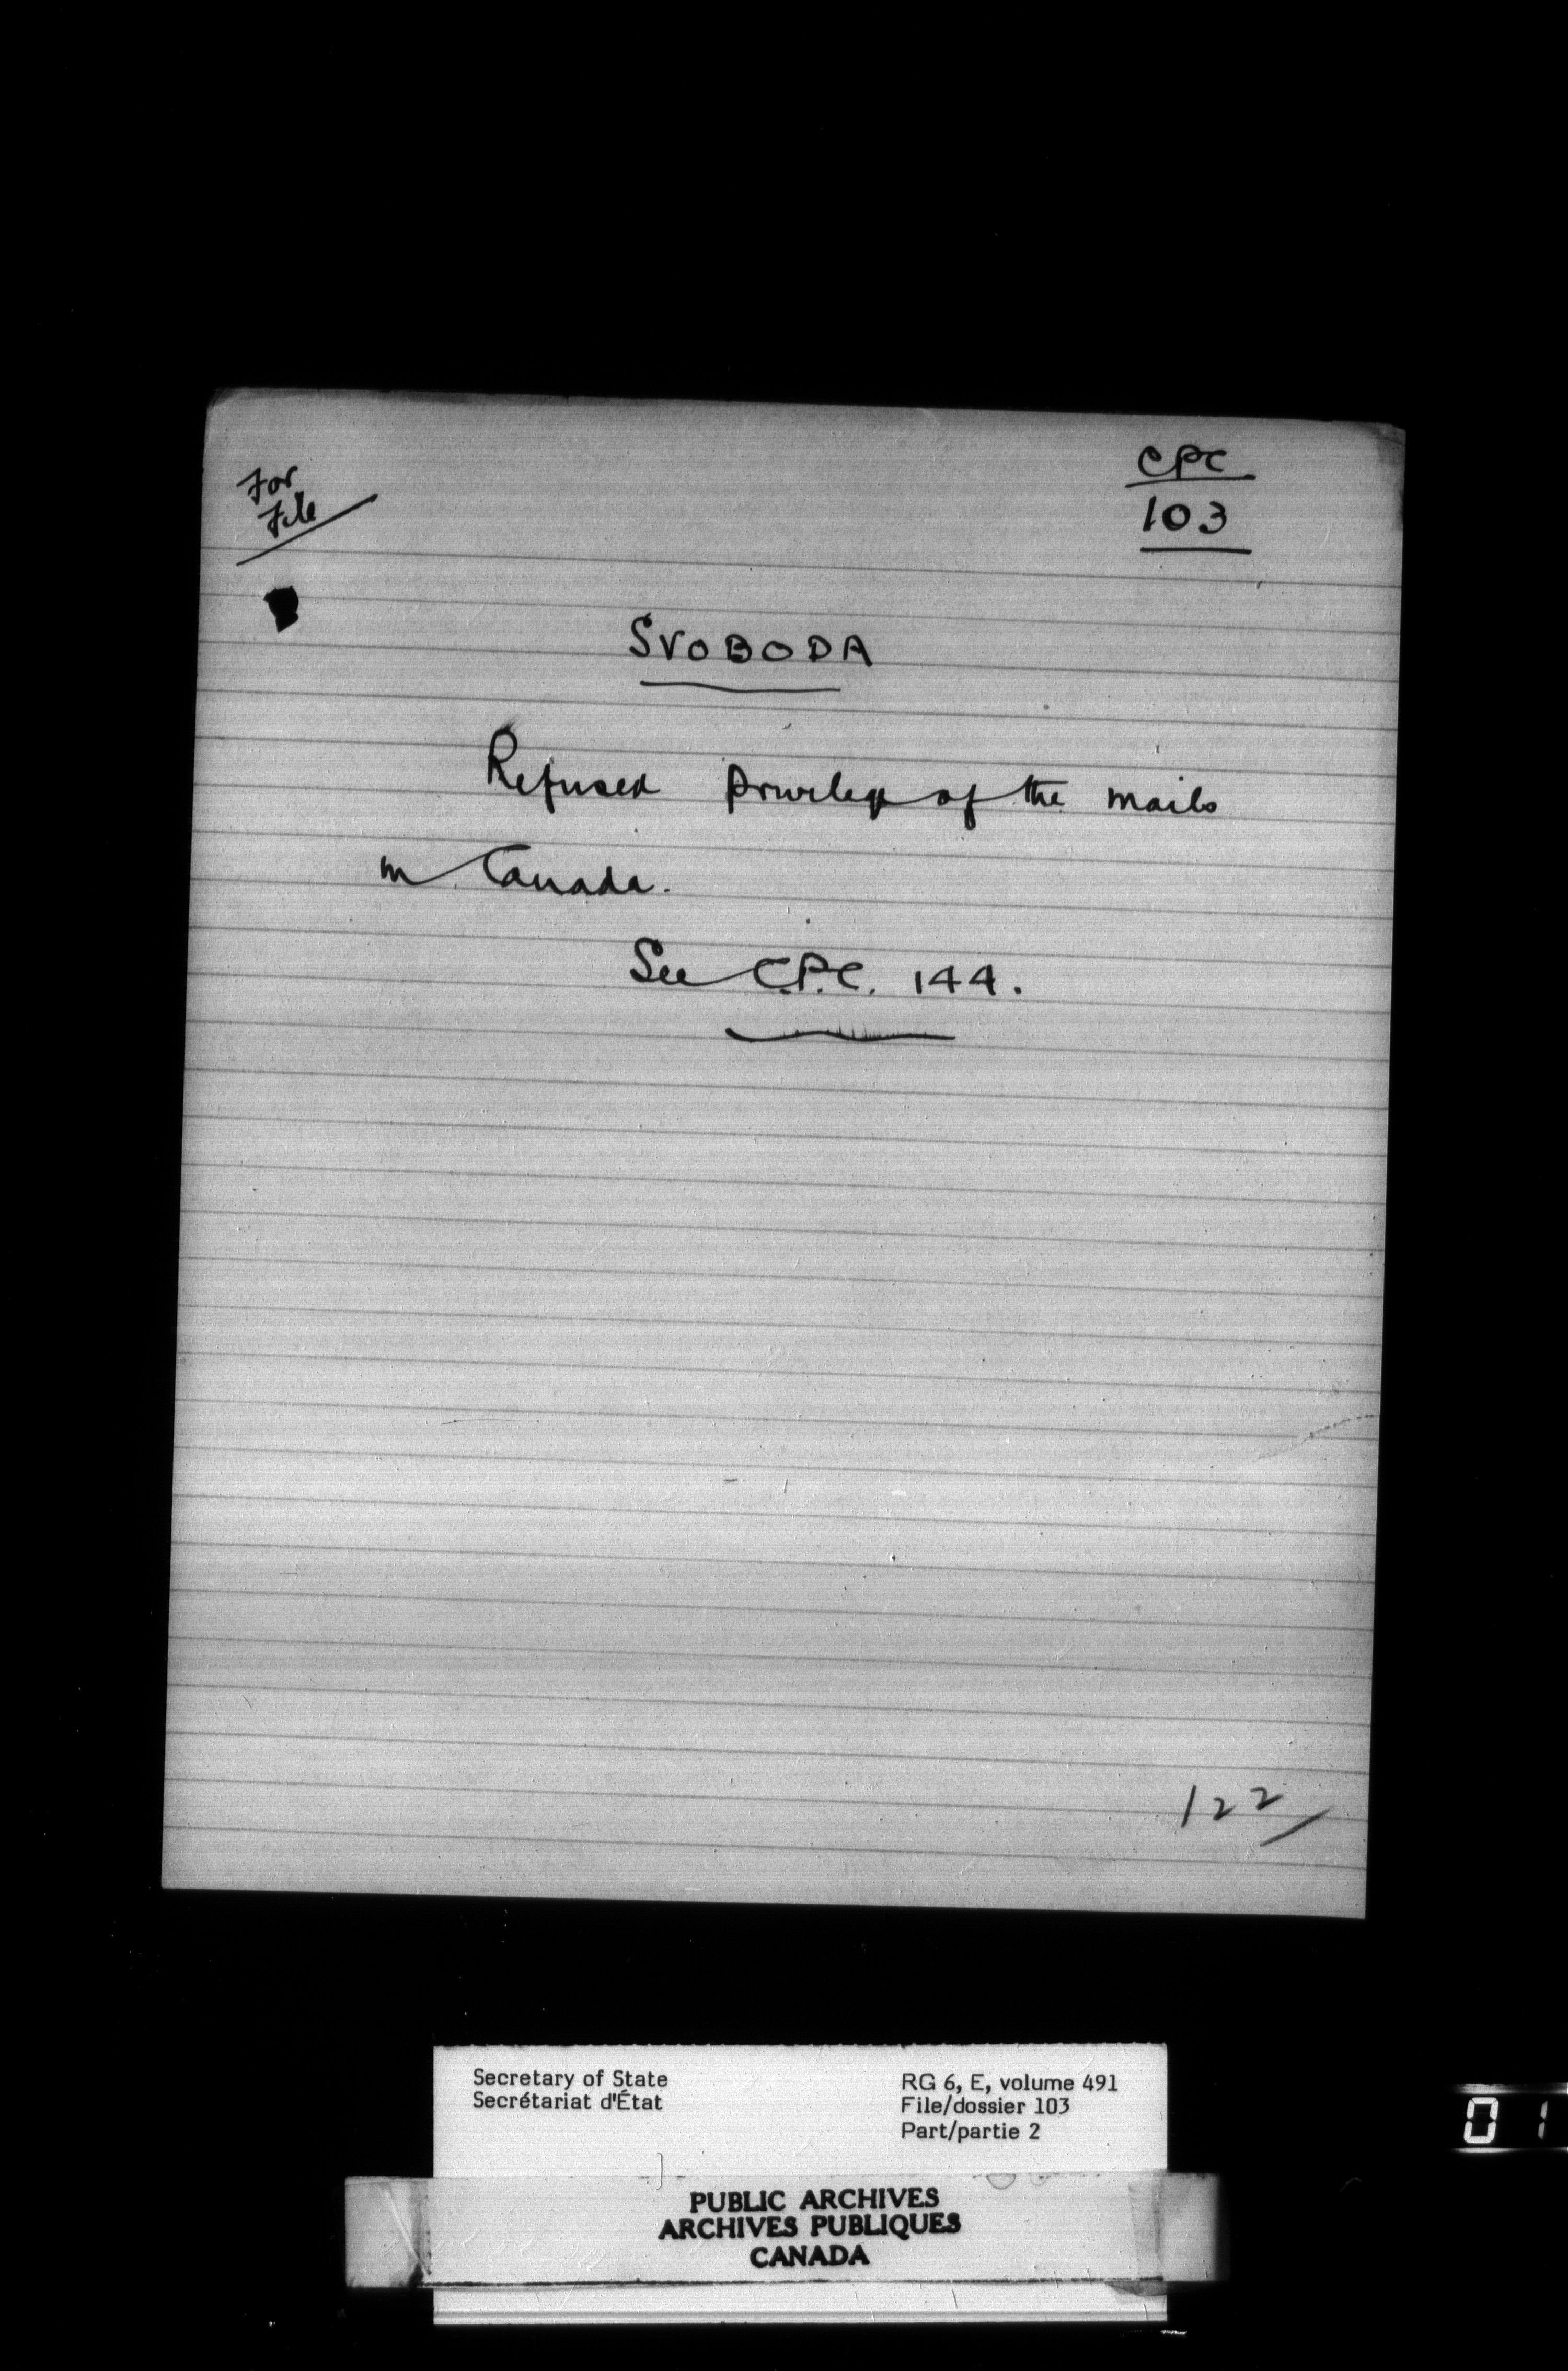 For
File
CPC
103
SVOBODA
Refused privilege of the mails
in Canada.
See C.P.C. 144.
122
Secretary of State
Secrétariat d'État
RG 6, E, volume 491
File/dossier 103
Part/partie 2
PUBLIC ARCHIVES
ARCHIVES PUBLIQUES
CANADA
01